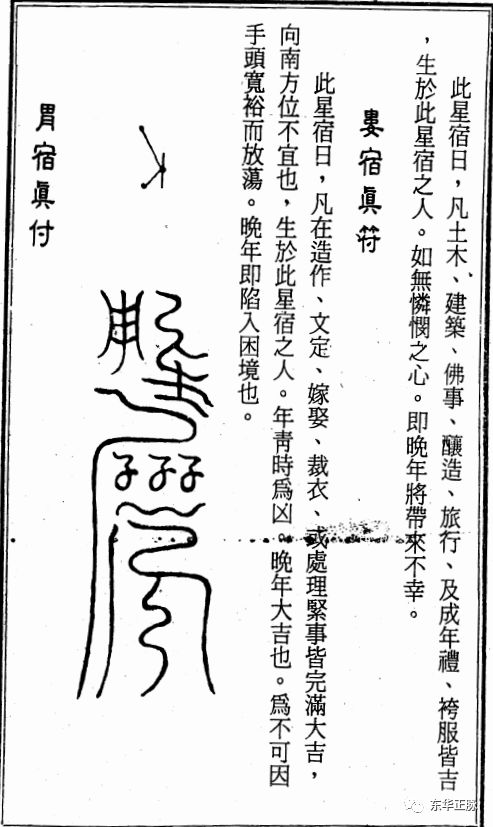 此星宿日，凡土木、建築、佛事、釀造、旅行、及成年禮、袴服皆吉
，生於此星宿之人。如無憐憫之心。即晚年將帶來不幸。
婁宿眞符
此星宿日，凡在造作、文定、嫁娶、裁衣、或處理緊事皆完滿大吉，
向南方位不宜也，生於此星宿之人。年靑時爲凶。晚年大吉也。爲不可因
手頭寬裕而放蕩。晚年即陷入困境也。
胃宿眞付
东华正脉